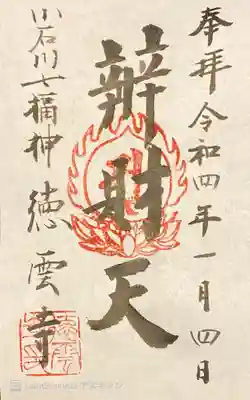 奉拝 令和四年一月四日
辨財天
小石川七福神 徳雲寺